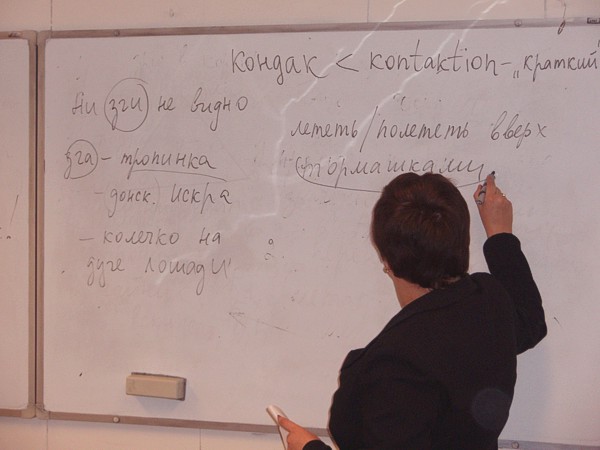 кондак < kontaktion – „краткий"
Ни зги не видно
зга – тропинка
– донск. искра
– колечко на
дуге лошади
лететь/полететь вверх
тормашками